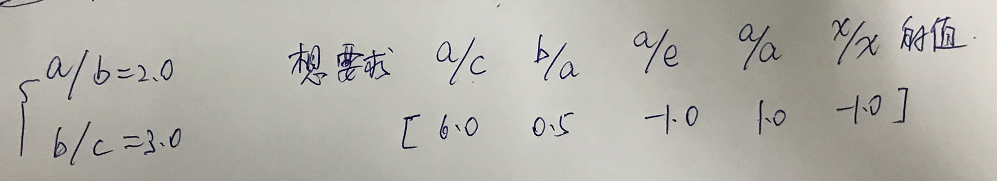 a/b=2.0 想要求 a/c b/a a/e a/a x/x 的值.
b/c=3.0 [ 6.0 0.5 -1.0 1.0 -1.0 ]